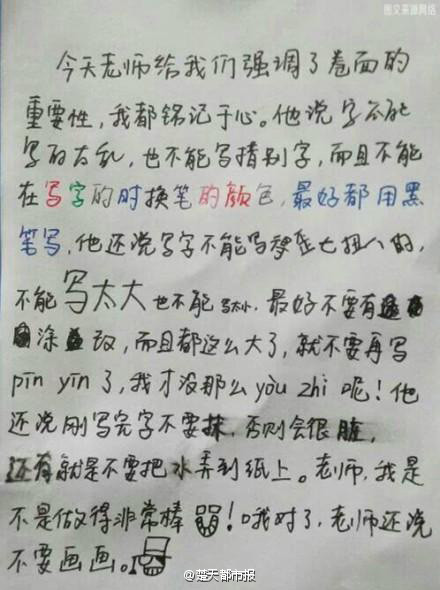 图文来源网络
今天老师给我们强调了卷面的
重要性，我都铭记于心。他说字不能
写的太乱，也不能写错别字，而且不能
在写字的时换笔的颜色，最好都用黑
笔写，他还说写字不能写歪七扭八的，
不能写太大也不能写太小，最好不要有
涂改，而且都这么大了，就不要再写
pīn yīn了，我才没那么yòu zhi呢！他
还说刚写完字不要抹，否则会很脏，
还有就是不要把水弄到纸上。老师，我是
不是做得非常棒！哦对了，老师还说
不要画画。
@楚天都市报